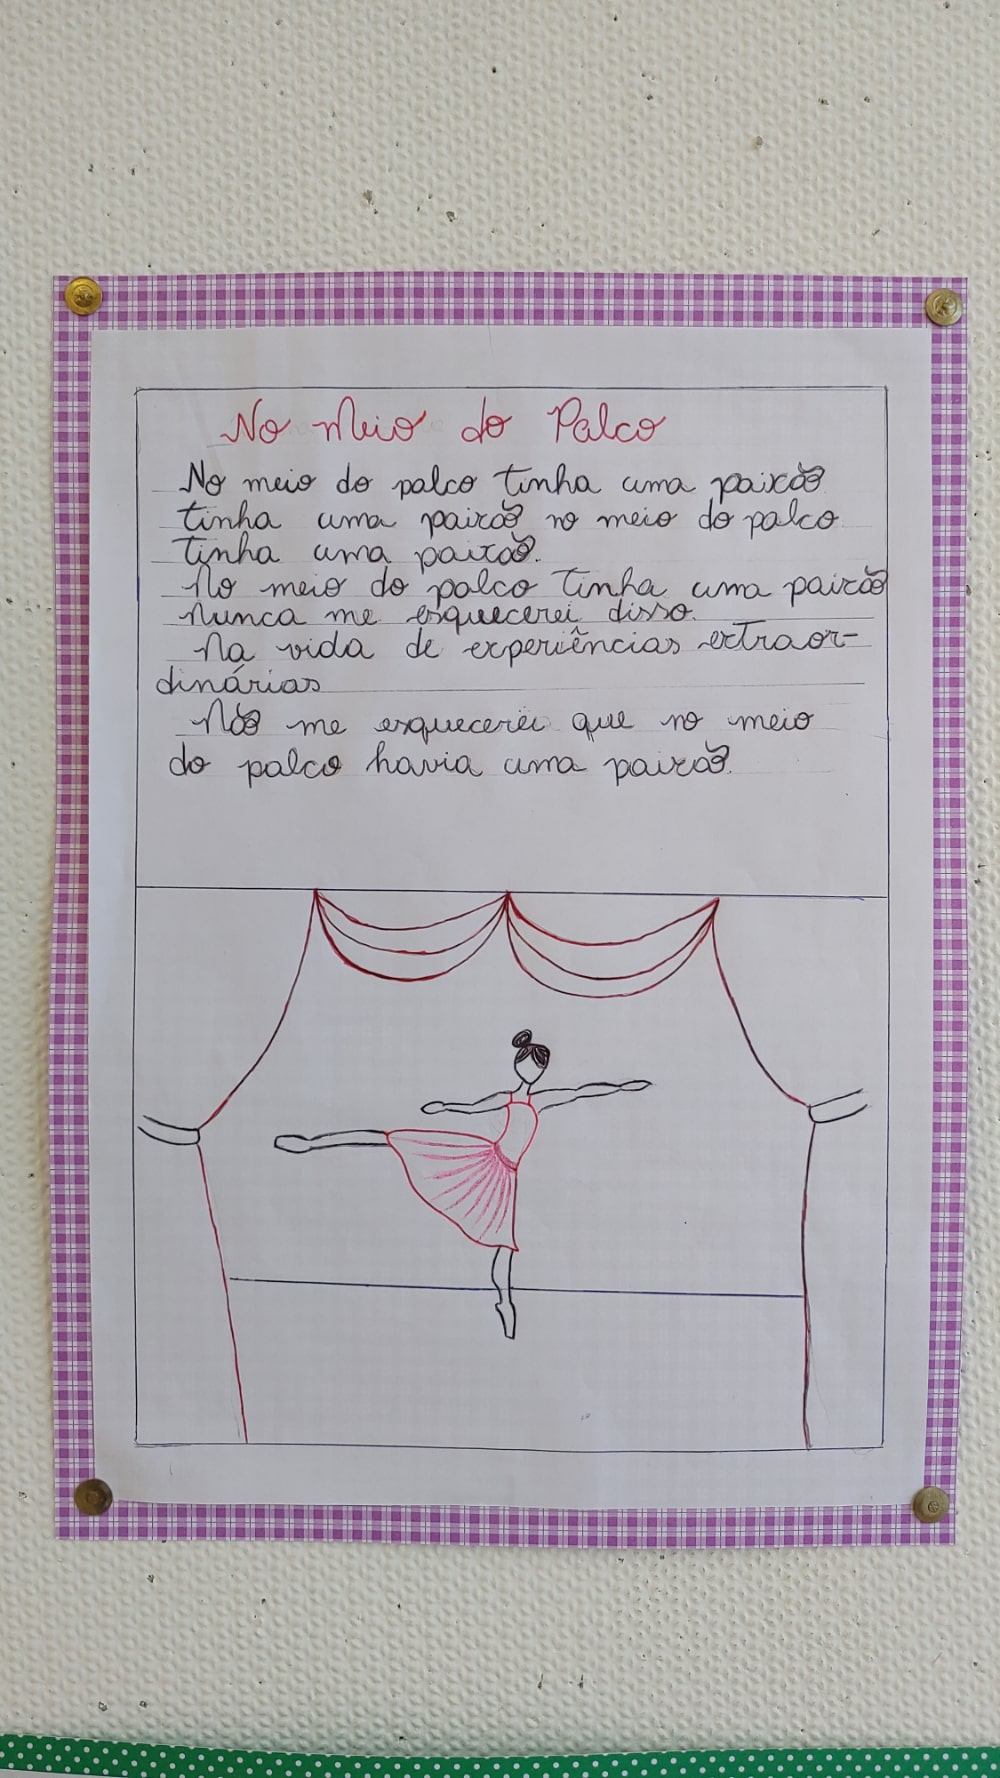 No Meio do Palco
No meio do palco tinha uma paixão
tinha uma paixão no meio do palco
tinha uma paixão.
No meio do palco tinha uma paixão
nunca me esquecerei disso.
Na vida de experiências extraor-
dinárias
Não me esquecerei que no meio
do palco havia uma paixão.